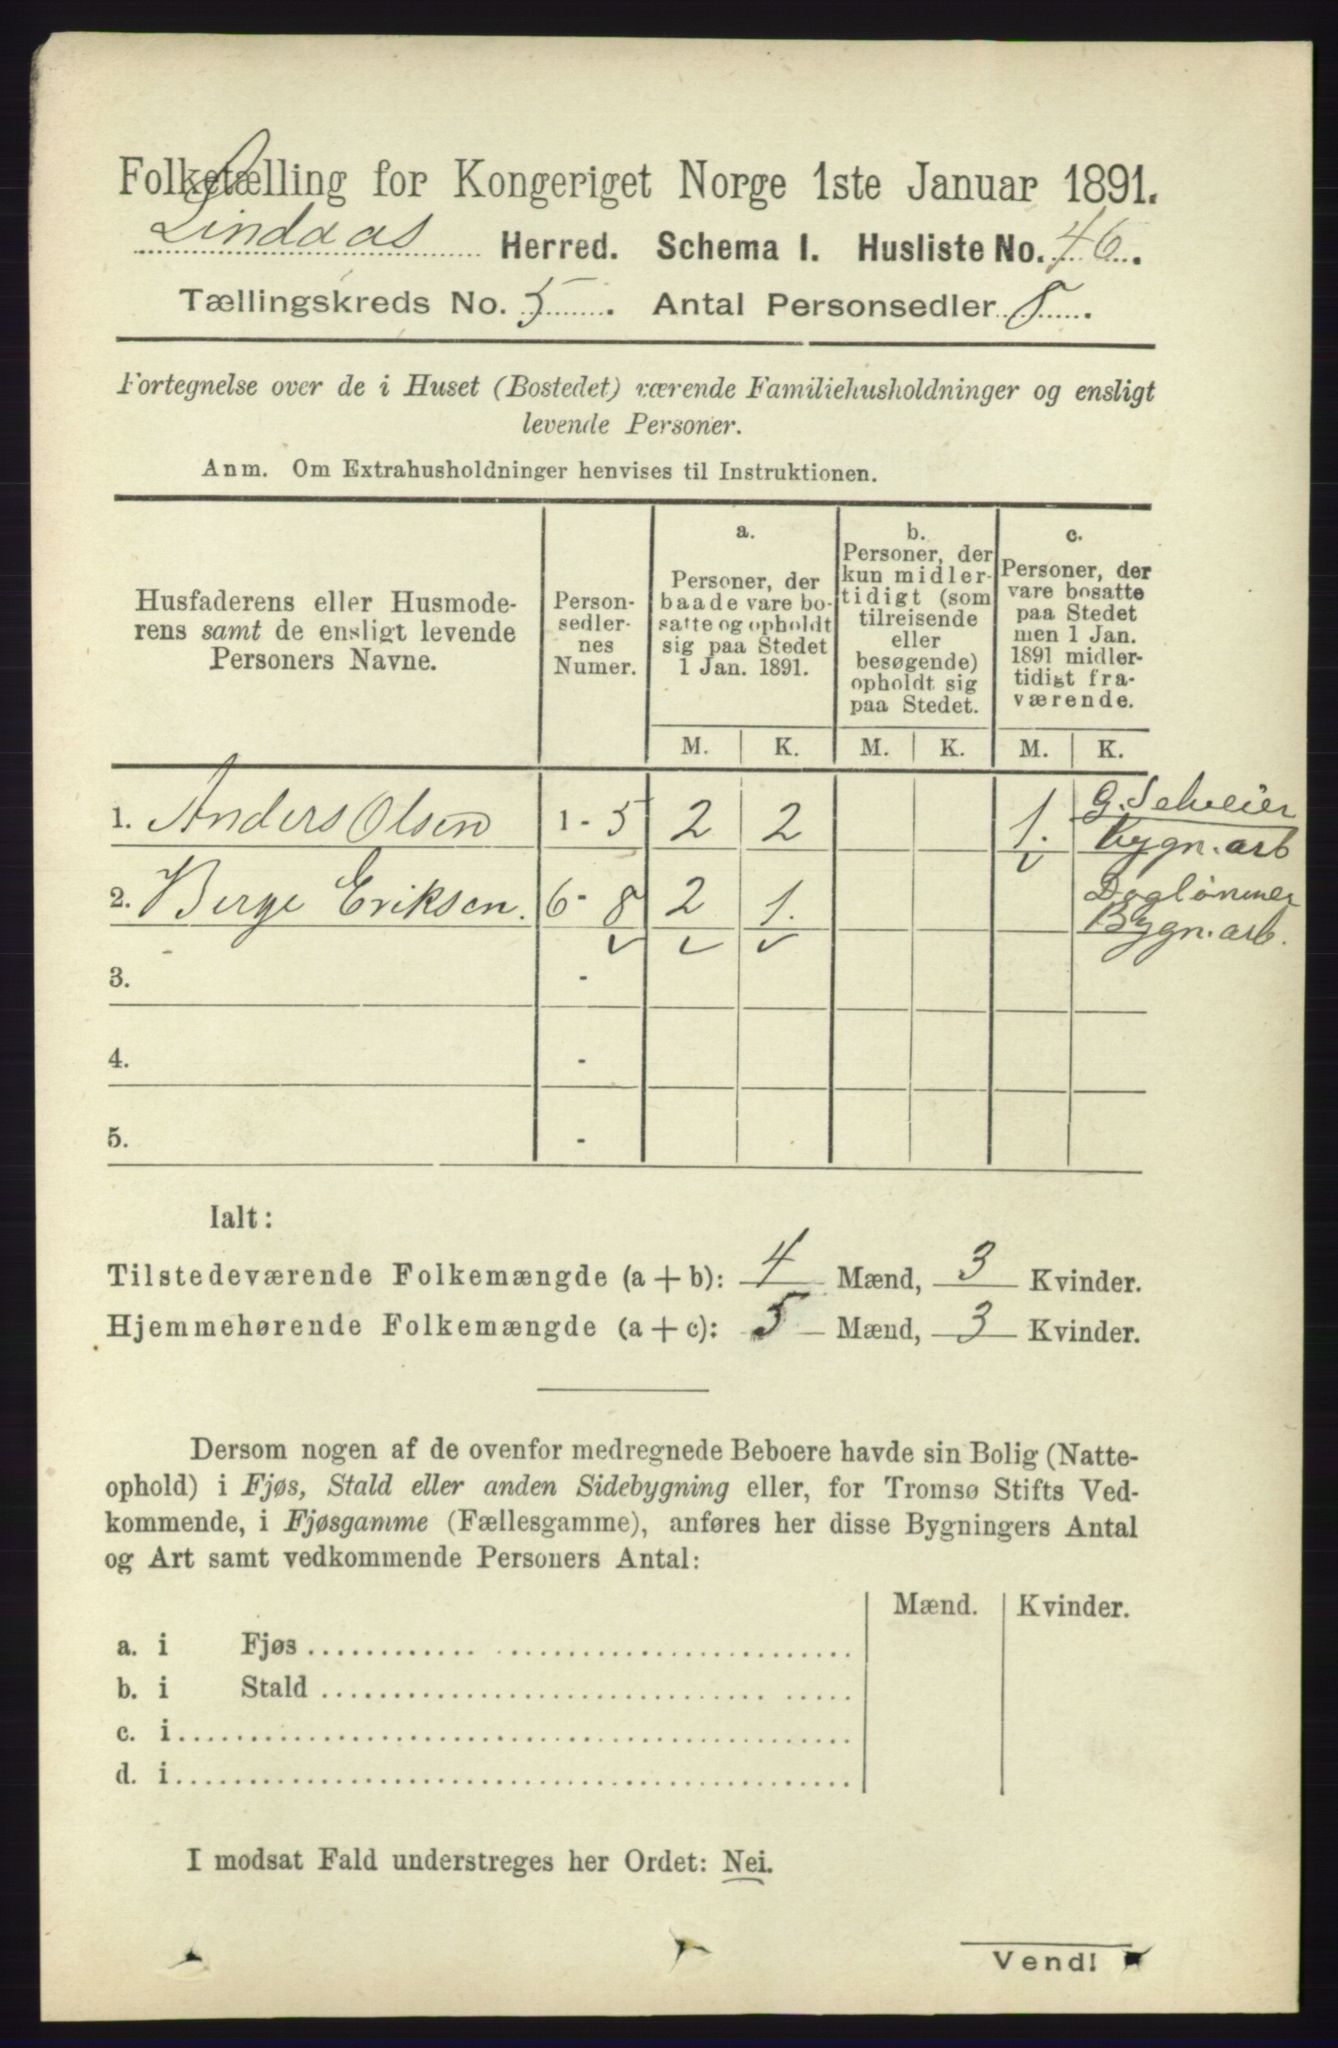 Folketælling for Kongeriget Norge 1ste Januar 1891.
Lindaas Herred. Schema I. Husliste No. 46.
Tællingskreds No. 5. Antal Personsedler 8.
Fortegnelse over de i Huset (Bostedet) værende Familiehusholdninger og ensligt
levende Personer.
Anm. Om Extrahusholdninger henvises til Instruktionen.
Husfaderens eller Husmode-
rens samt de ensligt levende
Personers Navne.
Person-
sedler-
nes
Numer.
a.
Personer, der
baade vare bo-
satte og opholdt
sig paa Stedet
1 Jan. 1891.
b.
Personer, der
kun midler-
tidigt (som
tilreisende
eller
besøgende)
opholdt sig
paa Stedet.
c.
Personer, der
vare bosatte
paa Stedet
men 1 Jan.
1891 midler-
tidigt fra-
værende.
M. K. M. K. M. K.
1. Anders Olsen 1 - 5 2 2 1. G. Selveier
Bygn. arb
2. Berge Eriksen. 6 - 8 2 1. Daglønner
Bygn. arb.
3. -
4. -
5. -
Ialt:
Tilstedeværende Folkemængde (a + b): 4 Mænd, 3 Kvinder.
Hjemmehørende Folkemængde (a + c): 5 Mænd, 3 Kvinder.
Dersom nogen af de ovenfor medregnede Beboere havde sin Bolig (Natte-
ophold) i Fjøs, Stald eller anden Sidebygning eller, for Tromsø Stifts Ved-
kommende, i Fjøsgamme (Fællesgamme), anføres her disse Bygningers Antal
og Art samt vedkommende Personers Antal:
Mænd. Kvinder.
a. i Fjøs
b. i Stald
c. i
d. i
I modsat Fald understreges her Ordet: Nei.
Vend!